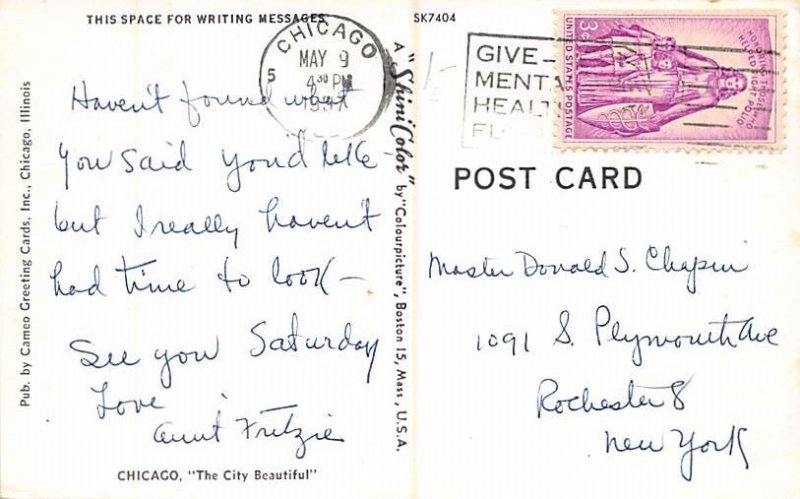 THIS SPACE FOR WRITING MESSAGES
Haven't found what
you said you'd like
but I really haven't
had time to look—
See you Saturday
Love
Aunt Fritzie
CHICAGO, "The City Beautiful"
Pub. by Cameo Greeting Cards, Inc., Chicago, Illinois
A "Shini Color" by "Colourpicture", Boston 15, Mass., U.S.A.
SK7404
CHICAGO
MAY 9
4 30 PM
1957
5
GIVE—
MENTAL
HEALTH
3¢
UNITED STATES POSTAGE
HONORING THOSE WHO
HELPED FIGHT POLIO
POST CARD
Master Donald S. Chapin
1091 S. Plymouth Ave
Rochester 8
New York